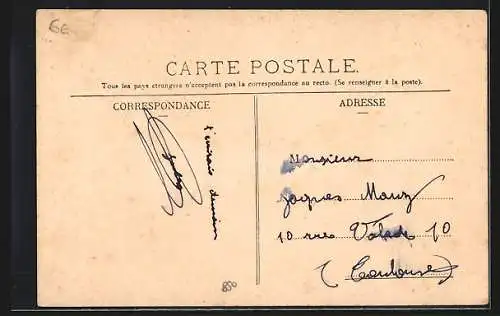 6E
CARTE POSTALE.
Tous les pays étrangers n'acceptent pas la correspondance au recto. (Se renseigner à la poste).
CORRESPONDANCE
ADRESSE
Monsieur
Jacques
10 rue Valade 10
(Toulouse)
850